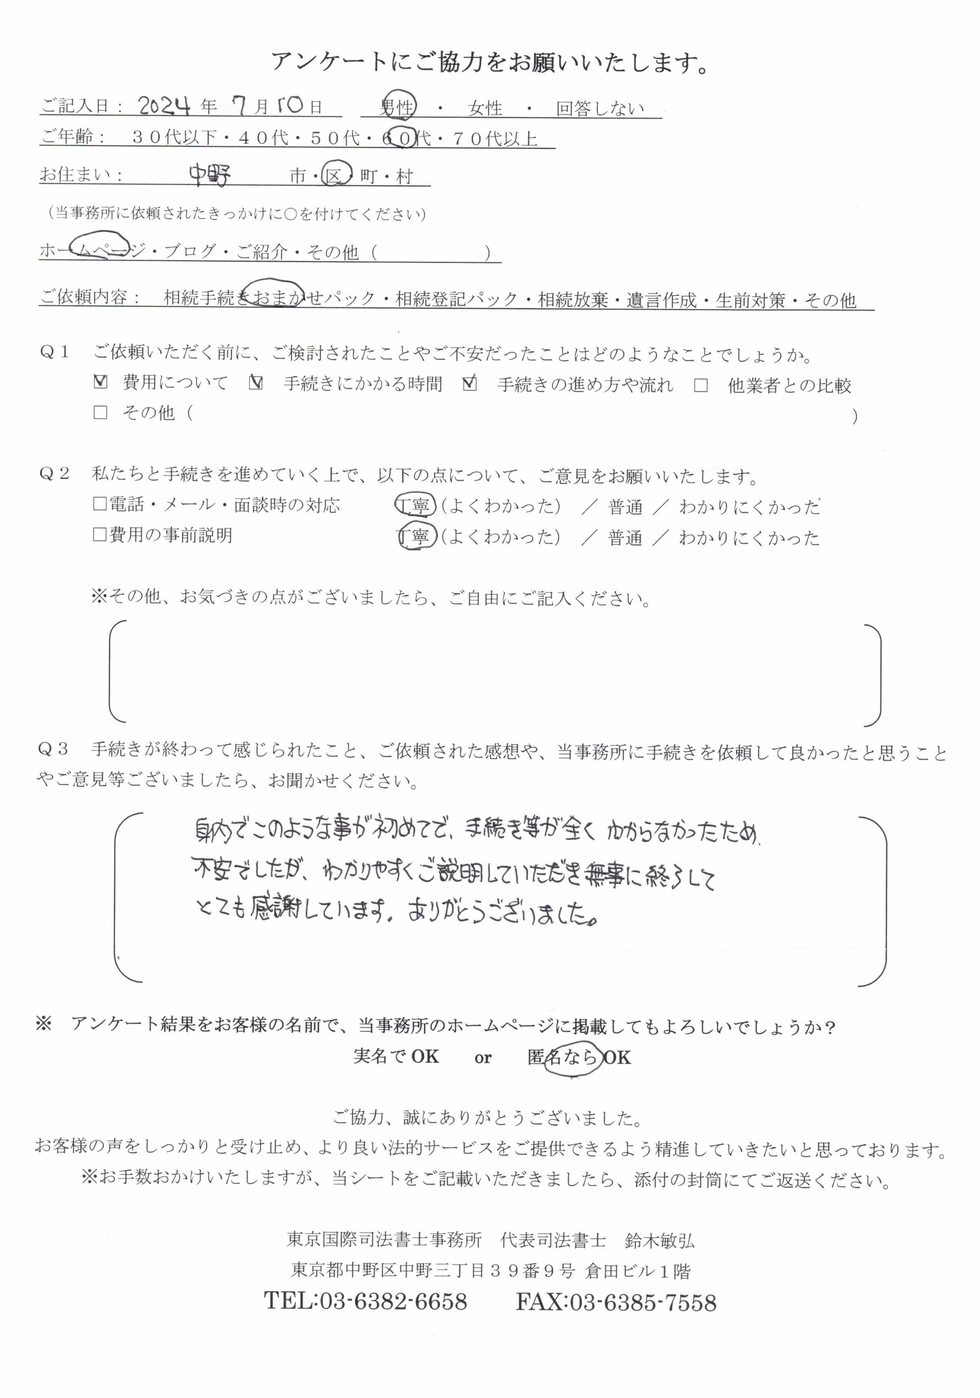 アンケートにご協力をお願いいたします。
ご記入日： 2024 年 7 月 10 日　男性 ・ 女性 ・ 回答しない
ご年齢： ３０代以下・４０代・５０代・６０代・７０代以上
お住まい： 中野　市・区・町・村
（当事務所に依頼されたきっかけに○を付けてください）
ホームページ・ブログ・ご紹介・その他（　　　　　　）
ご依頼内容： 相続手続きおまかせパック・相続登記パック・相続放棄・遺言作成・生前対策・その他
Ｑ１　ご依頼いただく前に、ご検討されたことやご不安だったことはどのようなことでしょうか。
☑ 費用について ☑ 手続きにかかる時間 ☑ 手続きの進め方や流れ □ 他業者との比較
□ その他（　　　　　　）
Ｑ２　私たちと手続きを進めていく上で、以下の点について、ご意見をお願いいたします。
□電話・メール・面談時の対応　丁寧（よくわかった） ／ 普通 ／ わかりにくかった
□費用の事前説明　丁寧（よくわかった） ／ 普通 ／ わかりにくかった
※その他、お気づきの点がございましたら、ご自由にご記入ください。
Ｑ３　手続きが終わって感じられたこと、ご依頼された感想や、当事務所に手続きを依頼して良かったと思うこと
やご意見等ございましたら、お聞かせください。
身内でこのような事が初めてで、手続き等が全くわからなかったため、
不安でしたが、わかりやすくご説明していただき無事に終了して
とても感謝しています。ありがとうございました。
※　アンケート結果をお客様の名前で、当事務所のホームページに掲載してもよろしいでしょうか？
実名で OK　or　匿名なら OK
ご協力、誠にありがとうございました。
お客様の声をしっかりと受け止め、より良い法的サービスをご提供できるよう精進していきたいと思っております。
※お手数おかけいたしますが、当シートをご記載いただきましたら、添付の封筒にてご返送ください。
東京国際司法書士事務所　代表司法書士　鈴木敏弘
東京都中野区中野三丁目３９番９号 倉田ビル１階
TEL:03-6382-6658　FAX:03-6385-7558